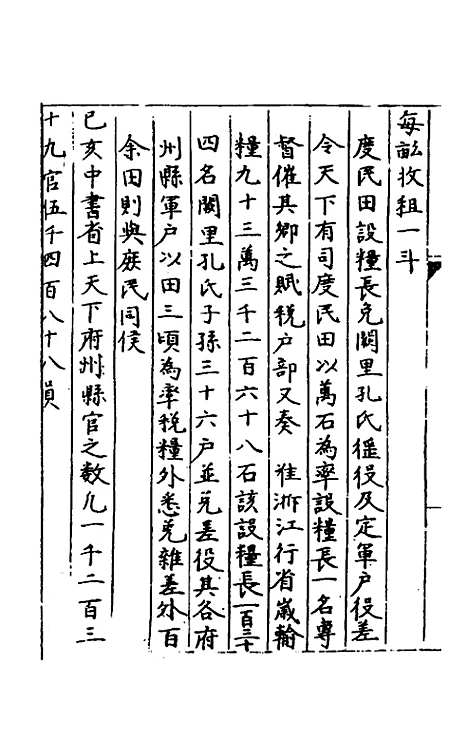 每畝收租一斗
度民田設糧長免闕里孔氏徭役及定軍户役差
令天下有司度民田以萬石為率設糧長一名專
督催其鄉之賦税户部又奏 淮浙江行省嵗輸
糧九十三萬三千二百六十八石該設糧長一百三十
四名闕里孔氏子孫三十六户並免差役其各府
州縣軍户以田三頃為率税糧外悉免雜差外百
余田則與庻民同侯
已亥中書省上天下府州縣官之數凡一千二百三
十九官伍千四百八十八員